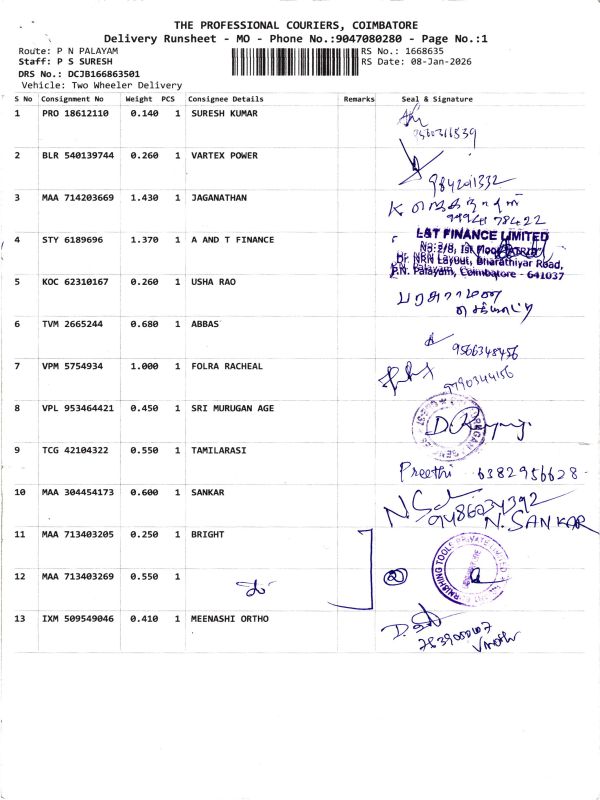 THE PROFESSIONAL COURIERS, COIMBATORE
Delivery Runsheet - MO - Phone No.:9047080280 - Page No.:1
Route: P N PALAYAM
RS No.: 1668635
Staff: P S SURESH
RS Date: 08-Jan-2026
DRS No.: DCJB166863501
Vehicle: Two Wheeler Delivery
S No Consignment No Weight PCS Consignee Details Remarks Seal & Signature
1 PRO 18612110 0.140 1 SURESH KUMAR
2 BLR 540139744 0.260 1 VARTEX POWER
9842011332
3 MAA 714203669 1.430 1 JAGANATHAN
99941 78422
4 STY 6189696 1.370 1 A AND T FINANCE
L&T FINANCE LIMITED
No:2/8, Ist Floor
Dr. NRN Layout, Bharathiyar Road,
P.N. Palayam, Coimbatore - 641037
5 KOC 62310167 0.260 1 USHA RAO
6 TVM 2665244 0.680 1 ABBAS
9566348456
7 VPM 5754934 1.000 1 FOLRA RACHEAL
9790344156
8 VPL 953464421 0.450 1 SRI MURUGAN AGE
9 TCG 42104322 0.550 1 TAMILARASI
Preethi 6382956628
10 MAA 304454173 0.600 1 SANKAR
9486234392
N. SANKAR
11 MAA 713403205 0.250 1 BRIGHT
12 MAA 713403269 0.550 1
2
13 IXM 509549046 0.410 1 MEENASHI ORTHO